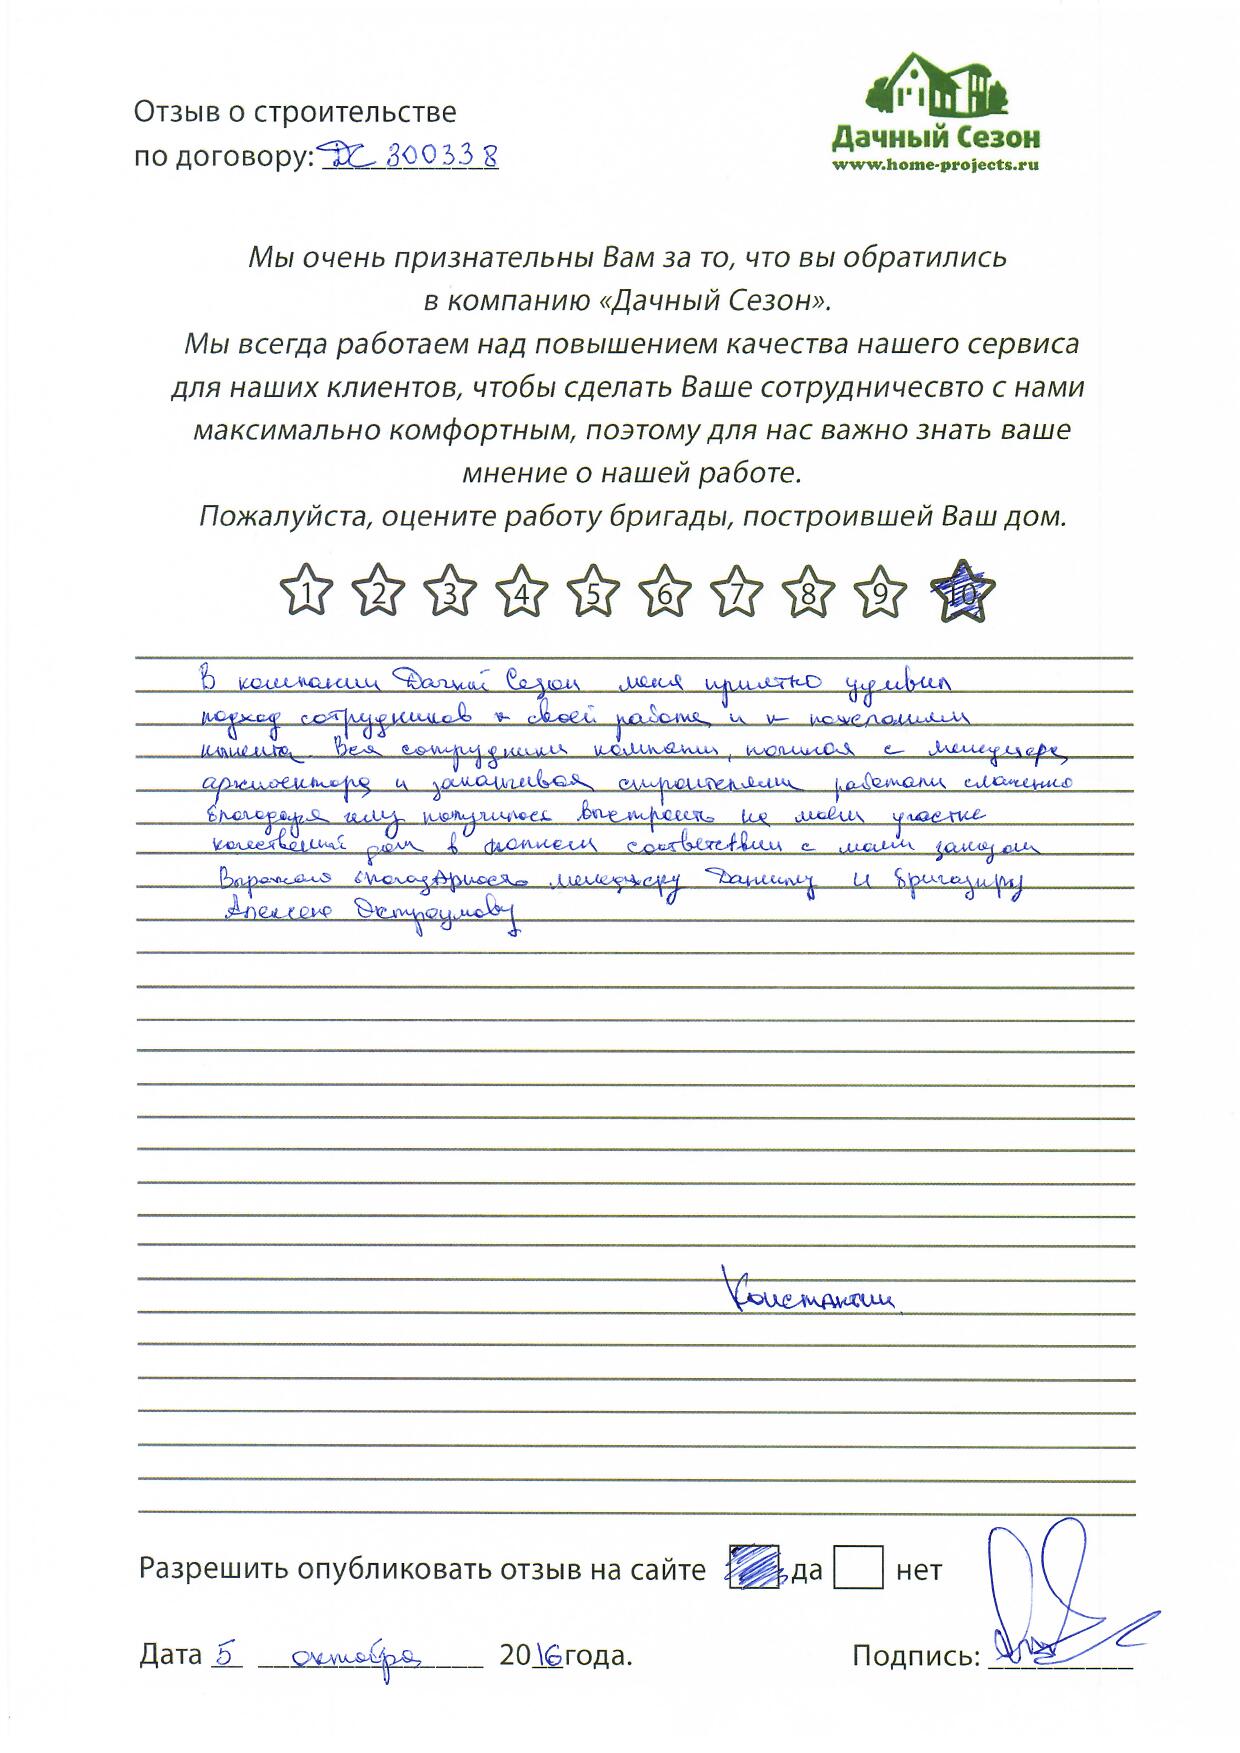 Отзыв о строительстве
по договору: ДС 300338
Дачный Сезон
www.home-projects.ru
Мы очень признательны Вам за то, что вы обратились
в компанию «Дачный Сезон».
Мы всегда работаем над повышением качества нашего сервиса
для наших клиентов, чтобы сделать Ваше сотрудничесвто с нами
максимально комфортным, поэтому для нас важно знать ваше
мнение о нашей работе.
Пожалуйста, оцените работу бригады, построившей Ваш дом.
1 2 3 4 5 6 7 8 9 10
В компании Дачный Сезон меня приятно удивил
подход сотрудников к своей работе и к пожеланиям
клиента. Все сотрудники компании, начиная с менеджера,
архитектора и заканчивая строителями работали слаженно
благодаря чему получилось выстроить на моем участке
качественный дом в полном соответствии с моим заказом
Выражаю благодарность менеджеру и бригадиру
Алексею Остроумову
Константин
Разрешить опубликовать отзыв на сайте да нет
Дата 5 октября 2016 года. Подпись: